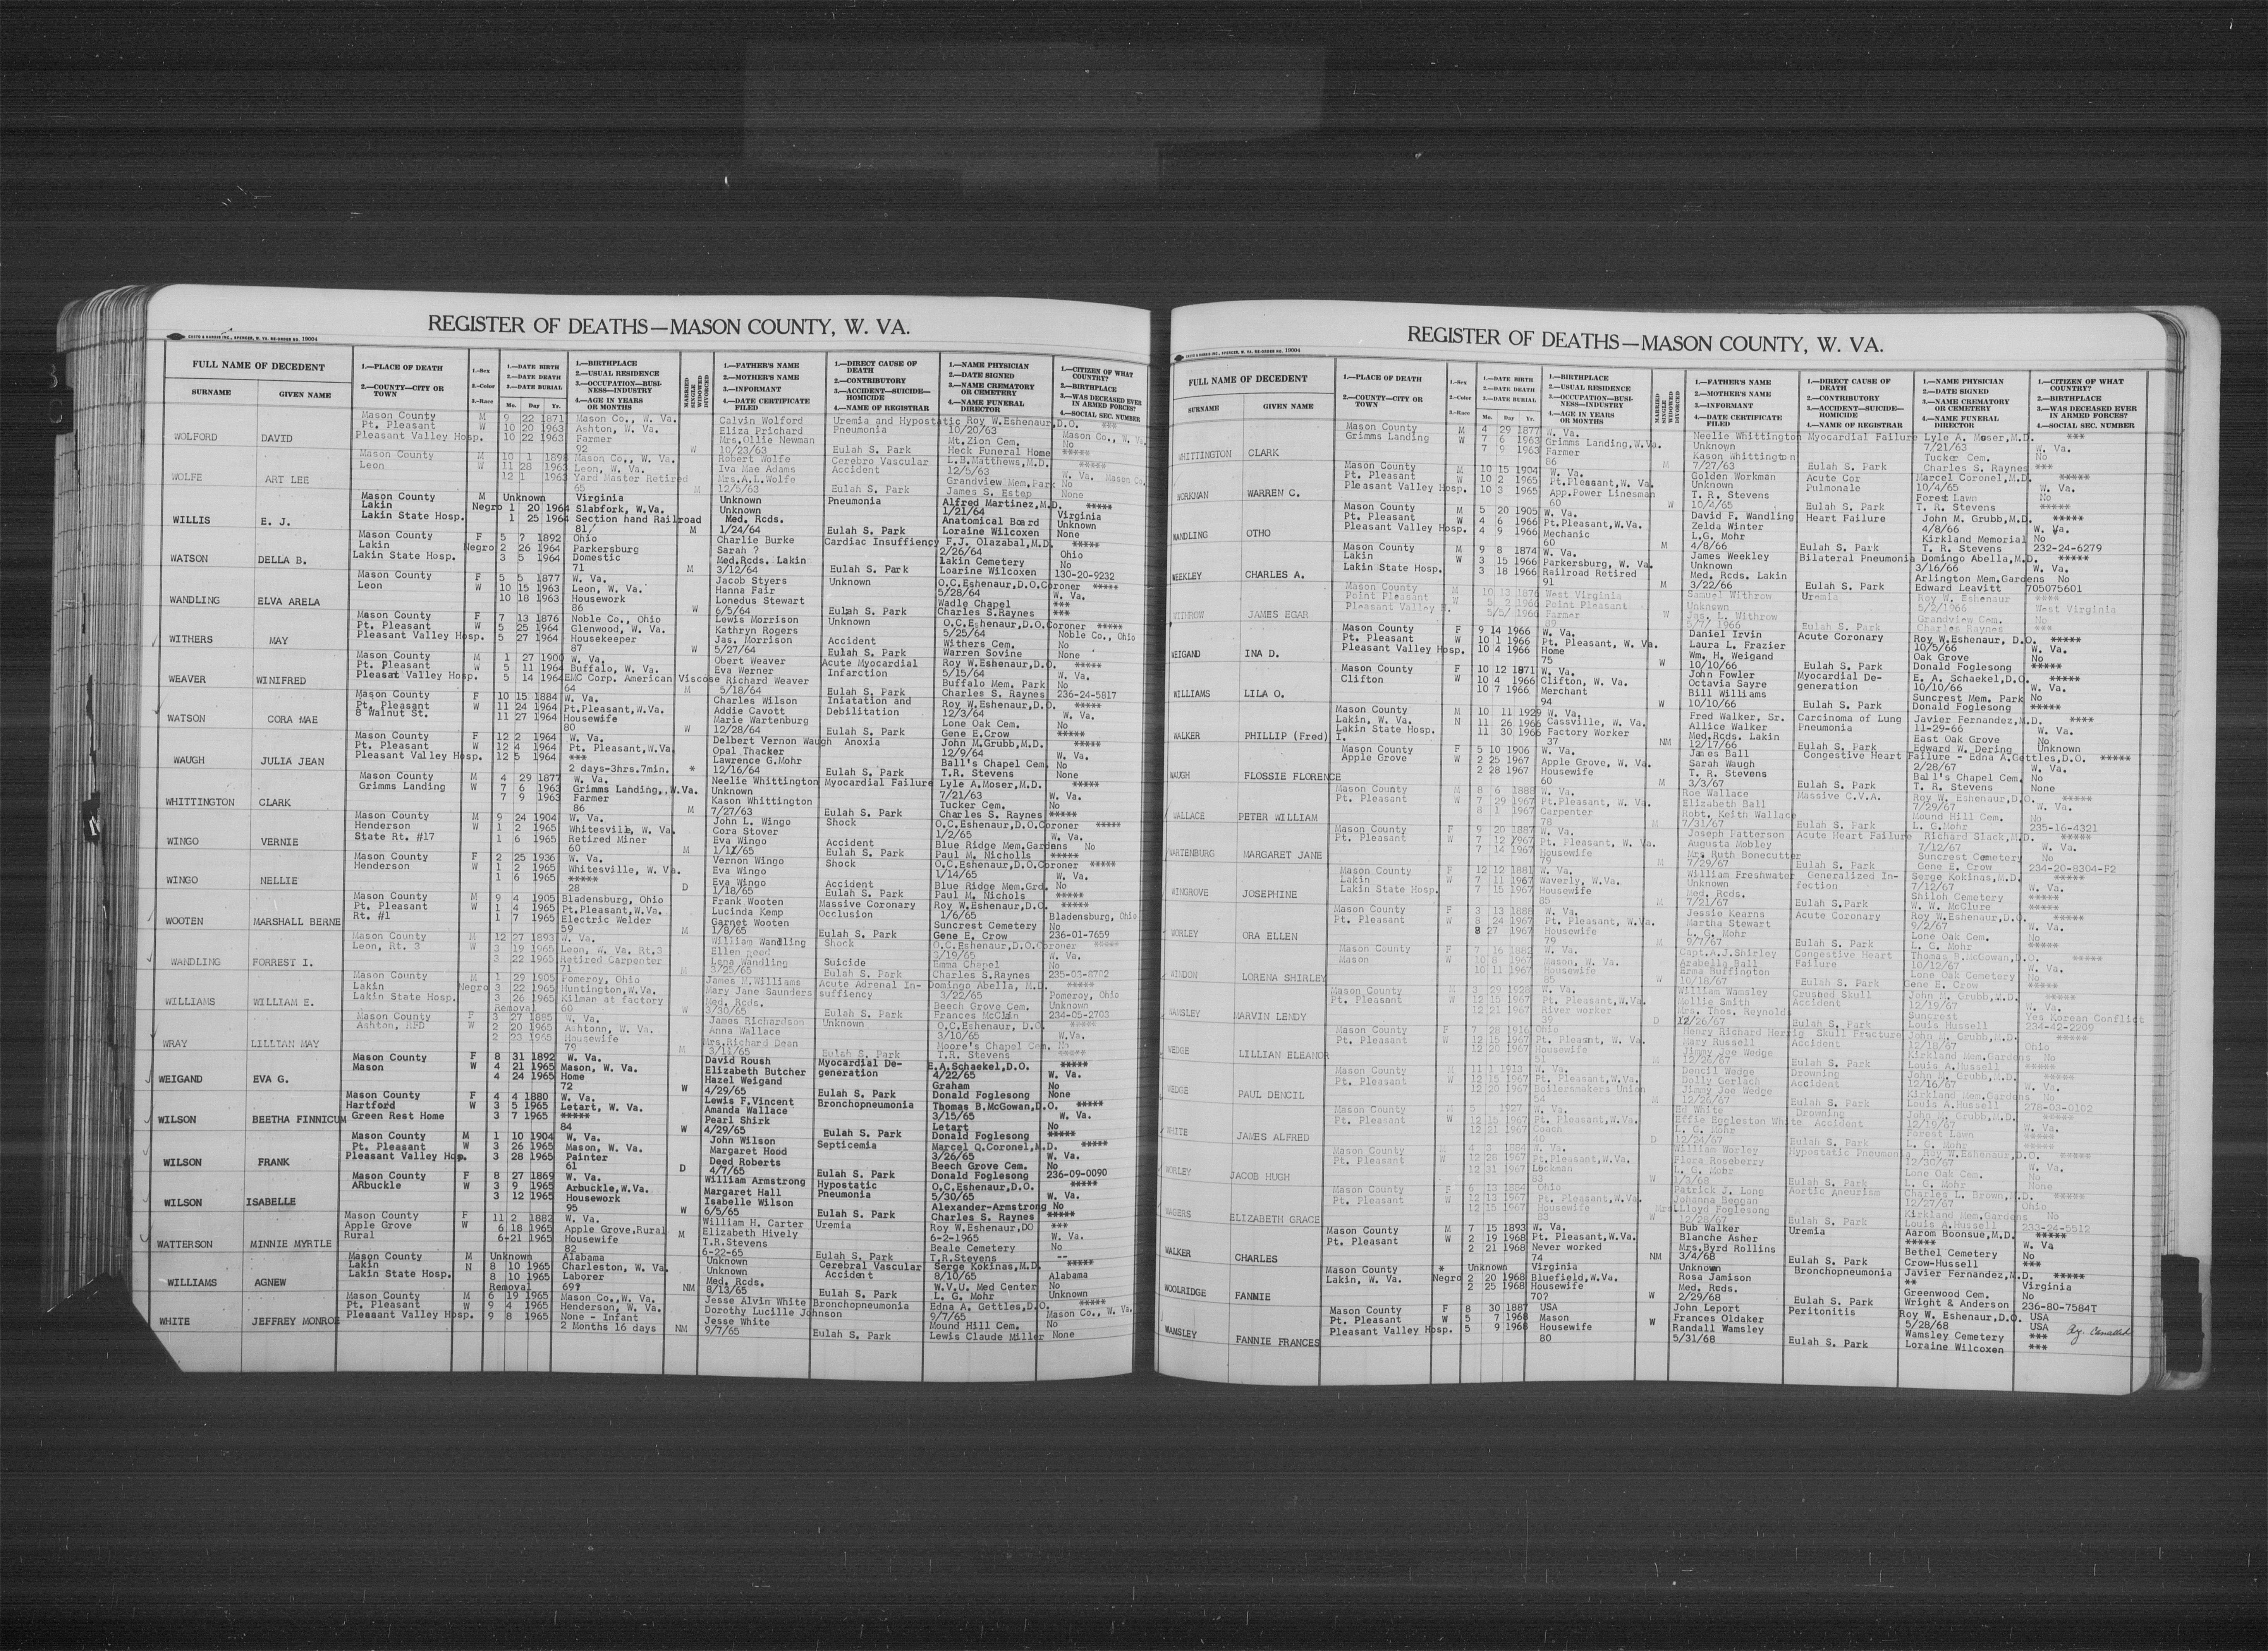 REGISTER OF DEATHS—MASON COUNTY, W. VA.
CASTO & HARRIS INC., SPENCER, W. VA. RE-ORDER NO. 19004
FULL NAME OF DECEDENT
SURNAME GIVEN NAME
1.—PLACE OF DEATH
2.—COUNTY—CITY OR TOWN
1.—Sex
2.—Color
3.—Race
1.—DATE BIRTH
2.—DATE DEATH
3.—DATE BURIAL
Mo. Day Yr.
1.—BIRTHPLACE
2.—USUAL RESIDENCE
3.—OCCUPATION—BUSINESS—INDUSTRY
4.—AGE IN YEARS OR MONTHS
MARRIED SINGLE WIDOWED DIVORCED
1.—FATHER'S NAME
2.—MOTHER'S NAME
3.—INFORMANT
4.—DATE CERTIFICATE FILED
1.—DIRECT CAUSE OF DEATH
2.—CONTRIBUTORY
3.—ACCIDENT—SUICIDE—HOMICIDE
4.—NAME OF REGISTRAR
1.—NAME PHYSICIAN
2.—DATE SIGNED
3.—NAME CREMATORY OR CEMETERY
4.—NAME FUNERAL DIRECTOR
1.—CITIZEN OF WHAT COUNTRY?
2.—BIRTHPLACE
3.—WAS DECEASED EVER IN ARMED FORCES?
4.—SOCIAL SEC. NUMBER
Mason County M 9 22 1871 Mason Co., W. Va. Calvin Wolford Uremia and Hypostatic Roy W.Eshenaur,D.O. ***
Pt. Pleasant W 10 20 1963 Ashton, W. Va. Eliza Prichard Pneumonia 10/20/63 Mason Co., W. Va.
WOLFORD DAVID Pleasant Valley Hosp. 10 22 1963 Farmer Mrs.Ollie Newman Mt.Zion Cem. No
92 W 10/23/63 Eulah S. Park Heck Funeral Home *****
Mason County M 10 1 1898 Mason Co., W. Va. Robert Wolfe Cerebro Vascular L.B.Matthews,M.D. *****
Leon W 11 28 1963 Leon, W. Va. Iva Mae Adams Accident 12/5/63 W. Va. Mason Co.
WOLFE ART LEE 12 1 1963 Yard Master Retired Mrs.A.L.Wolfe Grandview Mem.Park No
65 M 12/5/63 Eulah S. Park James S. Estep None
Mason County M Unknown Virginia Unknown Pneumonia Alfred Martinez,M.D. *****
Lakin Negro 1 20 1964 Slabfork, W.Va. Unknown 1/21/64 Virginia
WILLIS E. J. Lakin State Hosp. 1 25 1964 Section hand Railroad Med. Rcds. Anatomical Board Unknown
81/ M 1/24/64 Eulah S. Park Loraine Wilcoxen None
Mason County F 5 7 1892 Ohio Charlie Burke Cardiac Insuffiency F.J. Olazabal,M.D. *****
Lakin Negro 2 26 1964 Parkersburg Sarah ? 2/26/64 Ohio
WATSON DELLA B. Lakin State Hosp. 3 5 1964 Domestic Med.Rcds. Lakin Lakin Cemetery No
71 M 3/12/64 Eulah S. Park Loarine Wilcoxen 130-20-9232
Mason County F 5 5 1877 W. Va. Jacob Styers Unknown O.C.Eshenaur,D.O.Coroner *****
Leon W 10 15 1963 Leon, W. Va. Hanna Fair 5/28/64 W. Va.
WANDLING ELVA ARELA 10 18 1963 Housework Lonedus Stewart Wadle Chapel ***
86 W 6/5/64 Eulah S. Park Charles S.Raynes ***
Mason County F 7 13 1876 Noble Co., Ohio Lewis Morrison Unknown O.C.Eshenaur,D.O.Coroner *****
Pt. Pleasant W 5 25 1964 Glenwood, W. Va. Kathryn Rogers 5/25/64 Noble Co., Ohio
WITHERS MAY Pleasant Valley Hosp. 5 27 1964 Housekeeper Jas. Morrison Accident Withers Cem. No
87 W 5/27/64 Eulah S. Park Warren Sovine None
Mason County M 1 27 1900 W. Va. Obert Weaver Acute Myocardial Roy W.Eshenaur,D.O. *****
Pt. Pleasant W 5 11 1964 Buffalo, W. Va. Eva Werner Infarction 5/15/64 W. Va.
WEAVER WINIFRED Pleasat Valley Hosp. 5 14 1964 EMC Corp. American Viscose Richard Weaver Buffalo Mem. Park No
64 M 5/18/64 Eulah S. Park Charles S. Raynes 236-24-5817
Mason County F 10 15 1884 W. Va. Charles Wilson Iniatation and Roy W.Eshenaur,D.O. *****
Pt. Pleasant W 11 24 1964 Pt.Pleasant,W.Va. Addie Cavott Debilitation 12/3/64 W. Va.
WATSON CORA MAE 8 Walnut St. 11 27 1964 Housewife Marie Wartenburg Lone Oak Cem. No
80 W 12/28/64 Eulah S. Park Gene E.Crow *****
Mason County F 12 2 1964 W. Va. Delbert Vernon Waugh Anoxia John M.Grubb,M.D. *****
Pt. Pleasant W 12 4 1964 Pt. Pleasant,W.Va. Opal Thacker 12/9/64 W. Va.
WAUGH JULIA JEAN Pleasant Valley Hosp. 12 5 1964 *** Lawrence G.Mohr Ball's Chapel Cem. No
2 days-3hrs.7min. * 12/16/64 Eulah S. Park T.R. Stevens None
Mason County M 4 29 1877 W. Va. Neelie Whittington Myocardial Failure Lyle A.Moser,M.D. *****
Grimms Landing W 7 6 1963 Grimms Landing,.W.Va. Unknown 7/21/63 W. Va.
WHITTINGTON CLARK 7 9 1963 Farmer Kason Whittington Tucker Cem. No
86 M 7/27/63 Eulah S. Park Charles S. Raynes *****
Mason County M 9 24 1904 W. Va. John L. Wingo Shock O.C.Eshenaur,D.O.Coroner *****
Henderson W 1 2 1965 Whitesville, W. Va. Cora Stover 1/2/65 W. Va.
WINGO VERNIE State Rt. #17 1 6 1965 Retired Miner Eva Wingo Accident Blue Ridge Mem.Gardens No
60 M Eulah S. Park Paul M. Nicholls *****
Mason County F 2 25 1936 W. Va. Vernon Wingo Shock O.C.Eshenaur,D.O.Coroner *****
Henderson W 1 2 1965 Whitesville, W. Va. Eva Wingo 1/14/65 W. Va.
WINGO NELLIE 1 6 1965 ***** Eva Wingo Accident Blue Ridge Mem.Grd. No
28 D 1/18/65 Eulah S. Park Paul M. Nichols *****
Mason County M 9 4 1905 Bladensburg, Ohio Frank Wooten Massive Coronary Roy W.Eshenaur,D.O. *****
Pt. Pleasant W 1 4 1965 Pt.Pleasant,W.Va. Lucinda Kemp Occlusion 1/6/65 Bladensburg, Ohio
WOOTEN MARSHALL BERNE Rt. #1 1 7 1965 Electric Welder Garnet Wooten Suncrest Cemetery No
59 M 1/8/65 Eulah S. Park Gene E. Crow 236-01-7659
Mason County M 12 27 1893 W. Va. William Wandling Shock O.C.Eshenaur,D.O.Coroner *****
Leon, Rt. 3 W 3 19 1965 Leon, W. Va. Rt.3 Ellen Reed 3/19/65 W. Va.
WANDLING FORREST I. 3 22 1965 Retired Carpenter Lena Wandling Suicide Emma Chapel No
71 M 3/25/65 Eulah S. Park Charles S.Raynes 235-03-8782
Mason County M 1 29 1905 Pomeroy, Ohio James M.Williams Acute Adrenal In- Domingo Abella, M.D. *****
Lakin Negro 3 22 1965 Huntington,W.Va. Mary Jane Saunders suffiency 3/22/65 Pomeroy, Ohio
WILLIAMS WILLIAM E. Lakin State Hosp. 3 26 1965 Kilman at factory Med. Rcds. Beech Grove Cem. Unknown
Removal 60 W 3/30/65 Eulah S. Park Frances McClain 234-05-2703
Mason County F 3 27 1885 W. Va. James Richardson Unknown O.C.Eshenaur, D.O. *****
Ashton, RFD W 2 20 1965 Ashtonn, W. Va. Anna Wallace 3/10/65 W.Va.
WRAY LILLIAN MAY 2 23 1965 Housewife Mrs.Richard Dean Moore's Chapel Cem. No
79 M 3/11/65 Eulah S. Park T.R. Stevens *****
Mason County F 8 31 1892 W. Va. David Roush Myocardial De- E.A.Schaekel,D.O. *****
Mason W 4 21 1965 Mason, W. Va. Elizabeth Butcher generation 4/22/65 W. Va.
WEIGAND EVA G. 4 24 1965 Home Hazel Weigand Graham No
72 W 4/29/65 Eulah S. Park Donald Foglesong None
Mason County F 4 4 1880 W. Va. Lewis F.Vincent Bronchopneumonia Thomas B.McGowan,D.O. *****
Hartford W 3 5 1965 Letart, W. Va. Amanda Wallace 3/15/65 W. Va.
WILSON BEETHA FINNICUM Green Rest Home 3 7 1965 ***** Pearl Shirk Letart No
84 W 4/29/65 Eulah S. Park Donald Foglesong *****
Mason County M 1 10 1904 W. Va. John Wilson Septicemia Marcel Q.Coronel,M.D. *****
Pt. Pleasant W 3 26 1965 Mason, W. Va. Margaret Hood 3/26/65 W. Va.
WILSON FRANK Pleasant Valley Hosp. 3 28 1965 Painter Deed Roberts Beech Grove Cem. No
61 D 4/7/65 Eulah S. Park Donald Foglesong 236-09-0090
Mason County F 8 27 1869 W. Va. William Armstrong Hypostatic O.C.Eshenaur,D.O. *****
ARbuckle W 3 9 1965 Arbuckle,W.Va. Margaret Hall Pneumonia 5/30/65 W. Va.
WILSON ISABELLE 3 12 1965 Housework Isabelle Wilson Alexander-Armstrong No
95 W 6/5/65 Eulah S. Park Charles S. Raynes *****
Mason County F 11 2 1882 W. Va. William H. Carter Uremia Roy W.Eshenaur,DO ***
Apple Grove W 6 18 1965 Apple Grove,Rural M Elizabeth Hively 6-2-1965 W. Va.
WATTERSON MINNIE MYRTLE Rural 6-21 1965 Housewife T.R.Stevens Beale Cemetery No
82 6-22-65 Eulah S. Park T.R.Stevens --
Mason County M Unknown Alabama Unknown Cerebral Vascular Serge Kokinas,M.D. *****
Lakin N 8 10 1965 Charleston, W. Va. Unknown Accident 8/10/65 Alabama
WILLIAMS AGNEW Lakin State Hosp. 8 10 1965 Laborer Med. Rcds. W.V.U. Med Center No
Removal 69? NM 8/13/65 Eulah S. Park L. G. Mohr Unknown
Mason County M 6 19 1965 Mason Co.,W. Va. Jesse Alvin White Bronchopneumonia Edna A. Gettles,D.O. *****
Pt. Pleasant W 9 4 1965 Henderson, W. Va. Dorothy Lucille Johnson 9/7/65 Mason Co., W. Va.
WHITE JEFFREY MONROE Pleasant Valley Hosp. 9 8 1965 None - Infant Jesse White Mound Hill Cem. No
2 Months 16 days NM 9/7/65 Eulah S. Park Lewis Claude Miller None
REGISTER OF DEATHS—MASON COUNTY, W. VA.
CASTO & HARRIS INC., SPENCER, W. VA. RE-ORDER NO. 19004
FULL NAME OF DECEDENT
SURNAME GIVEN NAME
1.—PLACE OF DEATH
2.—COUNTY—CITY OR TOWN
1.—Sex
2.—Color
3.—Race
1.—DATE BIRTH
2.—DATE DEATH
3.—DATE BURIAL
Mo. Day Yr.
1.—BIRTHPLACE
2.—USUAL RESIDENCE
3.—OCCUPATION—BUSINESS—INDUSTRY
4.—AGE IN YEARS OR MONTHS
MARRIED SINGLE WIDOWED DIVORCED
1.—FATHER'S NAME
2.—MOTHER'S NAME
3.—INFORMANT
4.—DATE CERTIFICATE FILED
1.—DIRECT CAUSE OF DEATH
2.—CONTRIBUTORY
3.—ACCIDENT—SUICIDE—HOMICIDE
4.—NAME OF REGISTRAR
1.—NAME PHYSICIAN
2.—DATE SIGNED
3.—NAME CREMATORY OR CEMETERY
4.—NAME FUNERAL DIRECTOR
1.—CITIZEN OF WHAT COUNTRY?
2.—BIRTHPLACE
3.—WAS DECEASED EVER IN ARMED FORCES?
4.—SOCIAL SEC. NUMBER
Mason County M 4 29 1877 W. Va. Neelie Whittington Myocardial Failure Lyle A. Moser,M.D. ***
Grimms Landing W 7 6 1963 Grimms Landing,W.Va. Unknown 7/21/63 W. Va.
WHITTINGTON CLARK 7 9 1963 Farmer Kason Whittington Tucker Cem. No
86 M 7/27/63 Eulah S. Park Charles S. Raynes ***
Mason County M 10 15 1904 W. Va. Golden Workman Acute Cor Marcel Coronel,M.D. *****
Pt. Pleasant W 10 2 1965 Pt.Pleasant,W. Va. Unknown Pulmonale 10/4/65 W. Va.
WORKMAN WARREN C. Pleasant Valley Hosp. 10 3 1965 App.Power Linesman T. R. Stevens Forest Lawn No
60 W 10/4/65 Eulah S. Park T. R. Stevens *****
Mason County M 5 20 1905 W. Va. David F. Wandling Heart Failure John M. Grubb,M.D. *****
Pt. Pleasant W 4 6 1966 Pt.Pleasant,W.Va. Zelda Winter 4/8/66 W. Va.
WANDLING OTHO Pleasant Valley Hosp. 4 9 1966 Mechanic L.G. Mohr Kirkland Memorial No
60 M 4/8/66 Eulah S. Park T. R. Stevens 232-24-6279
Mason County M 9 8 1874 W. Va. James Weekley Bilateral Pneumonia Domingo Abella,M.D. *****
Lakin W 3 15 1966 Parkersburg, W. Va. Unknown 3/16/66 W. Va.
WEEKLEY CHARLES A. Lakin State Hosp. 3 18 1966 Railroad Retired Med. Rcds. Lakin Arlington Mem.Gardens No
91 M 3/22/66 Eulah S. Park Edward Leavitt 705075601
Mason County M 10 13 1876 West Virginia Samuel Withrow Uremia Roy W. Eshenaur ****
Point Pleasant W 5 2 1966 Point Pleasant Unknown 5/2/1966 West Virginia
WITHROW JAMES EGAR Pleasant Valley H. 5/5/ 1966 Farmer Jas. L. Withrow Grandview Cem. No
89 W 5/7/ 1966 Eulah S. Park Charles Raynes ***
Mason County F 9 14 1966 W. Va. Daniel Irvin Acute Coronary Roy W.Eshenaur, D.O. *****
Pt. Pleasant W 10 1 1966 Pt. Pleasant, W. Va. Laura L. Frazier 10/5/66 W. Va.
WEIGAND INA D. Pleasant Valley Hosp. 10 4 1966 Home Wm. H. Weigand Oak Grove No
75 W 10/10/66 Eulah S. Park Donald Foglesong *****
Mason County F 10 12 1871 W. Va. John Fowler Myocardial De- E. A. Schaekel,D.O. *****
Clifton W 10 4 1966 Clifton, W. Va. Octavia Sayre generation 10/10/66 W. Va.
WILLIAMS LILA O. 10 7 1966 Merchant Bill Williams Suncrest Mem. Park No
94 W 10/10/66 Eulah S. Park Donald Foglesong *****
Mason County M 10 11 1929 W. Va. Fred Walker, Sr. Carcinoma of Lung Javier Fernandez,M.D. ****
Lakin, W. Va. N 11 26 1966 Cassville, W. Va. Allice Walker Pneumonia 11-29-66 W. Va.
WALKER PHILLIP (Fred) I. Lakin State Hosp. 11 30 1966 Factory Worker Med.Rcds. Lakin East Oak Grove No
37 NM 12/17/66 Eulah S. Park Edward W. Dering Unknown
Mason County F 5 10 1906 W. Va. James Ball Congestive Heart Failure - Edna A.Gettles,D.O. *****
Apple Grove W 2 25 1967 Apple Grove, W. Va. Sarah Waugh 2/28/67 W. Va.
WAUGH FLOSSIE FLORENCE 2 28 1967 Housewife T. R. Stevens Ball's Chapel Cem. No
60 M 3/3/67 Eulah S. Park T. R. Stevens None
Mason County M 8 6 1888 W. Va. Roe Wallace Massive C.V.A. Roy W. Eshenaur,D.O. *****
Pt. Pleasant W 7 29 1967 Pt.Pleasant, W. Va. Elizabeth Ball 7/29/67 W. Va.
WALLACE PETER WILLIAM 8 1 1967 Carpenter Robt. Keith Wallace Mound Hill Cem. No
78 M 7/31/67 Eulah S. Park L. G.Mohr 235-16-4321
Mason County F 9 20 1887 W. Va. Joseph Patterson Acute Heart Failure Richard Slack,M.D. *****
Pt. Pleasant W 7 12 1967 Pt. Pleasant, W. Va. Augusta Mobley 7/12/67 W. Va.
WARTENBURG MARGARET JANE 7 14 1967 Housewife Mrs Ruth Bonecutter Suncrest Cemetery No
79 M 7/29/67 Eulah S. Park Gene E. Crow 234-20-8304-F2
Mason County F 12 12 1881 W. Va. William Freshwater Generalized In- Serge Kokinas,M.D. *****
Lakin W 7 11 1967 Waverly, W.Va. Unknown fection 7/12/67 W. Va.
WINGROVE JOSEPHINE Lakin State Hosp. 7 15 1967 Housewife Med. Rcds. Shiloh Cemetery *****
85 M 7/21/67 Eulah S.Park W. W. McClure *****
Mason County F 3 13 1888 W. Va. Jessie Kearns Acute Coronary Roy W.Eshenaur,D.O. *****
Pt. Pleasant W 8 24 1967 Pt. Pleasant, W.Va. Martha Stewart 9/2/67 W. Va.
WORLEY ORA ELLEN 8 27 1967 Housewife L. G. Mohr Lone Oak Cem. No
79 M 9/7/67 Eulah S. Park L. G. Mohr *****
Mason County F 7 16 1882 W. Va. Capt.A.J.Shirley Congestive Heart Thomas B.McGowan,D.O. *****
Mason W 10 8 1967 Mason, W. Va. Arabella Ball Failure 10/12/67 W. Va.
WINDON LORENA SHIRLEY 10 11 1967 Housewife Erma Buffington Lone Oak Cemetery No
85 W 10/18/67 Eulah S. Park Gene E. Crow *****
Mason County M 3 29 1928 W. Va. William Wamsley Crushed Skull John M. Grubb,M.D. *****
Pt. Pleasant W 12 15 1967 Pt. Pleasant,W.Va. Mollie Smith Accident 12/19/67 W. Va.
WAMSLEY MARVIN LENDY 12 21 1967 River worker Mrs. Thos. Reynolds Suncrest Yes Korean Conflict
39 D 12/26/67 Eulah S. Park Louis Hussell 234-42-2209
Mason County F 7 28 1916 Ohio Henry Richard Herrig Skull Fracture John M. Grubb, M.D. *****
Pt. Pleasant W 12 15 1967 Pt. Pleasant, W. Va. Mary Russell Accident 12/18/67 Ohio
WEDGE LILLIAN ELEANOR 12 20 1967 Housewife Jimmy Joe Wedge Kirkland Mem.Gardens No
51 M 12/26/67 Eulah S. Park Louis A.Hussell *****
Mason County M 11 1 1913 W. Va. Dencil Wedge Drowning John M. Grubb,M.D. *****
Pt. Pleasant W 12 15 1967 Pt. Pleasant,W.Va. Dolly Gerlach Accident 12/16/67 W. Va.
WEDGE PAUL DENCIL 12 20 1967 Boilersmakers Union Jimmy Joe Wedge Kirkland Mem.Gardens No
54 M 12/26/67 Eulah S. Park Louis A.Hussell 278-03-0102
Mason County M 5 1927 W. Va. Ed White Drowning John M. Grubb,M.D. *****
Pt. Pleasant W 12 15 1967 Pt. Pleasant,W.Va. Effie Eggleston White Accident 12/19/67 W. Va.
WHITE JAMES ALFRED 12 21 1967 Coach L. G. Mohr Forest Lawn *****
40 D 12/24/67 Eulah S. Park L. G. Mohr *****
Mason County M 4 3 1884 W. Va. William Worley Hypostatic Pneumonia Roy W.Eshenaur,D.O. *****
Pt. Pleasant W 12 28 1967 Pt.Pleasant,W.Va. Flora Roseberry 12/30/67 W. Va.
WORLEY JACOB HUGH 12 31 1967 Lockman L. G. Mohr Lone Oak Cem. No
83 W 1/3/68 Eulah S. Park L. G. Mohr None
Mason County F 6 13 1884 Ohio Patrick J. Long Aortic Aneurism Charles L. Brown,M.D. *****
Pt. Pleasant W 12 13 1967 Pt. Pleasant,W.Va. Johanna Beggan 12/27/67 Ohio
WAGERS ELIZABETH GRACE 12 15 1967 Housewife Mrs.Lloyd Foglesong Kirkland Mem.Gardens No
83 W 12/28/67 Eulah S. Park Louis A.Hussell 233-24-5512
Mason County M 7 15 1893 W. Va. Bub Walker Uremia Aarom Boonsue,M.D. *****
Pt. Pleasant W 2 19 1968 Pt. Pleasant,W.Va. Blanche Asher ***** W. Va
WALKER CHARLES 2 21 1968 Never worked Mrs.Byrd Rollins Bethel Cemetery No
74 NM 3/4/68 Eulah S. Park Crow-Hussell ***
Mason County * Unknown Virginia Unknown Bronchopneumonia Javier Fernandez,M.D. *****
Lakin, W. Va. Negro 2 20 1968 Bluefield,W.Va. Rosa Jamison ** Virginia
WOOLRIDGE FANNIE 2 25 1968 Housewife Med. Rcds. Greenwood Cem. No
70? W 2/29/68 Eulah S. Park Wright & Anderson 236-80-7584T
Mason County F 8 30 1887 USA John Leport Peritonitis Roy W. Eshenaur,D.O. USA
Pt. Pleasant W 5 7 1968 Mason W Frances Oldaker 5/28/68 USA
WAMSLEY FANNIE FRANCES Pleasant Valley Hosp. 5 9 1968 Housewife Randall Wamsley Wamsley Cemetery ***
80 5/31/68 Eulah S. Park Loraine Wilcoxen ***